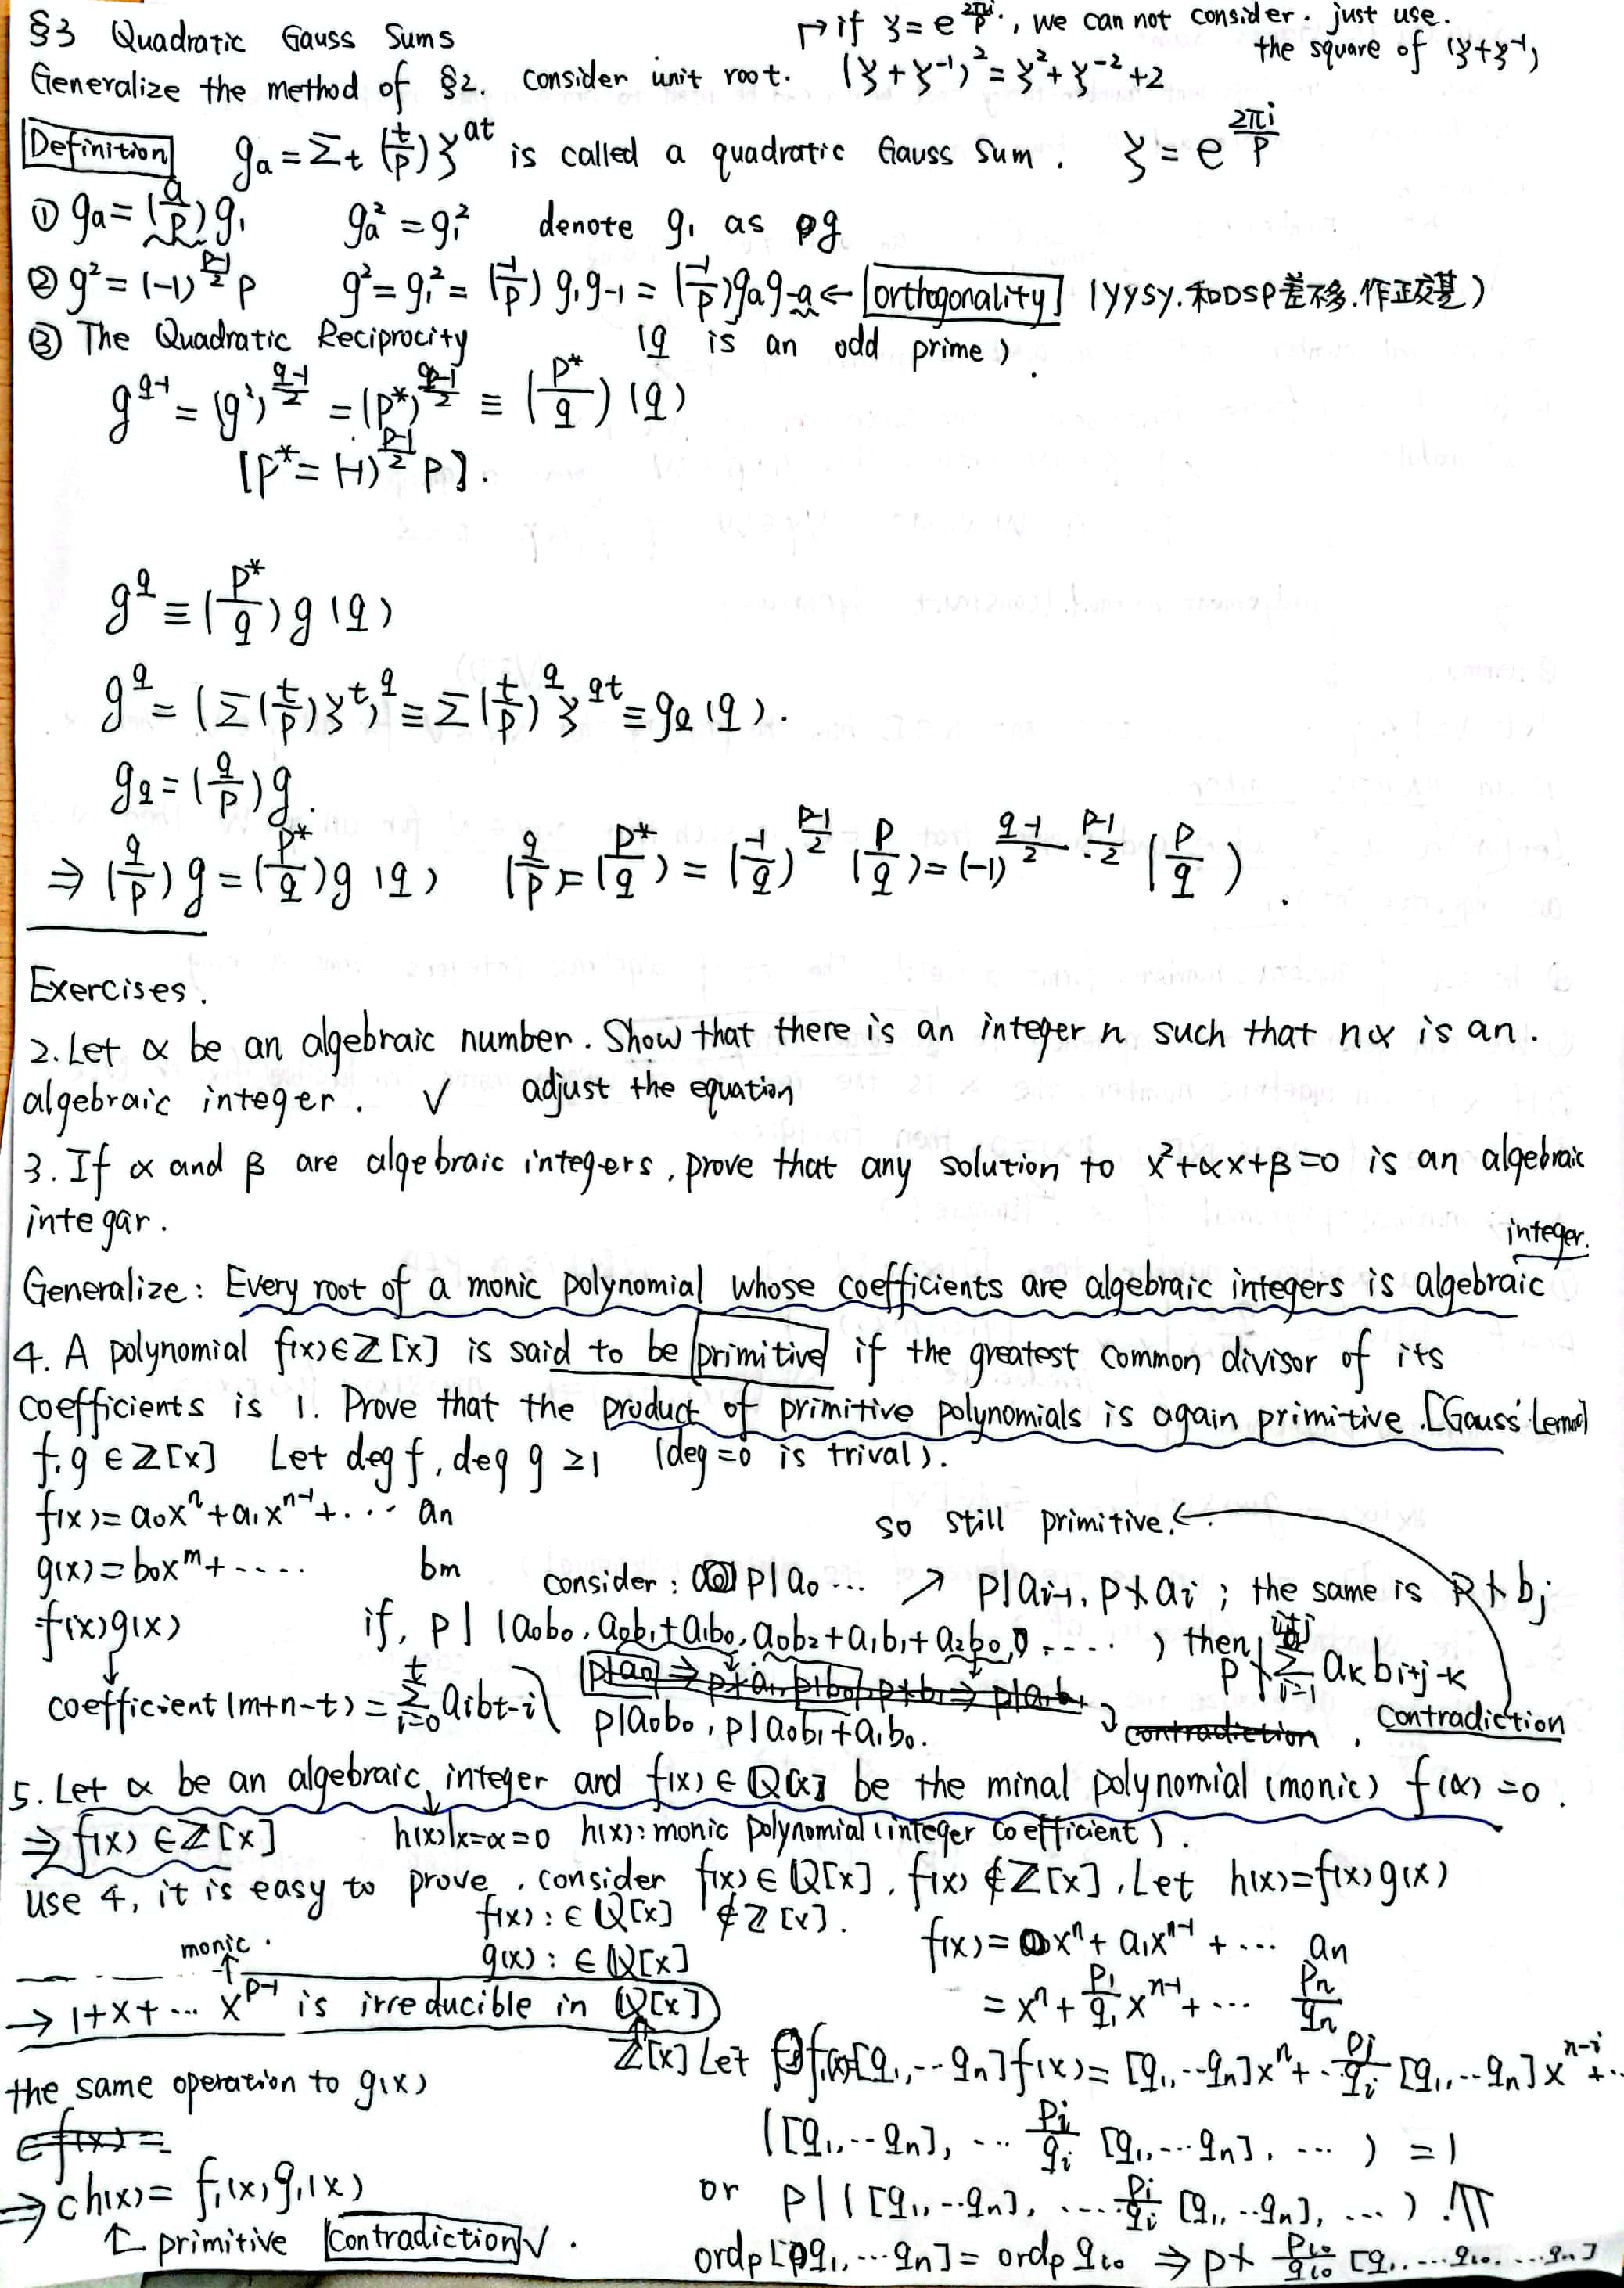 §3 Quadratic Gauss Sums
↱ if ζ = e^{2πi/p}, we can not consider. just use.
the square of (ζ+ζ^{-1})
Generalize the method of §2. consider unit root. (ζ+ζ^{-1})^2 = ζ^2+ζ^{-2}+2
Definition g_a = Σ_t (t/p) ζ^{at} is called a quadratic Gauss Sum. ζ = e^{2πi/p}
① g_a = (a/p) g_1 g_a^2 = g_1^2 denote g_1 as g
② g^2 = (-1)^{(p-1)/2} p g^2 = g_1^2 = (-1/p) g_1 g_{-1} = (-1/p) g_a g_{-a} ← orthogonality (yysy.和DSP差不多.作正交基)
③ The Quadratic Reciprocity (q is an odd prime).
g^{q-1} = (g^2)^{(q-1)/2} = (p*)^{(q-1)/2} ≡ (p*/q) (q)
[p* = (-1)^{(p-1)/2} p].
g^q ≡ (p*/q) g (q)
g^q = (Σ(t/p)ζ^t)^q ≡ Σ(t/p)^q ζ^{qt} ≡ g_q (q).
g_q = (q/p) g.
⇒ (q/p) g = (p*/q) g (q) (q/p) = (p*/q) = (-1/q)^{(p-1)/2} (p/q) = (-1)^{(q-1)/2 · (p-1)/2} (p/q).
Exercises.
2. Let α be an algebraic number. Show that there is an integer n such that nα is an.
algebraic integer. √ adjust the equation
3. If α and β are algebraic integers, prove that any solution to x^2+αx+β=0 is an algebraic
integar.
Generalize: Every root of a monic polynomial whose coefficients are algebraic integers is algebraic integer.
4. A polynomial f(x)∈Z[x] is said to be primitive if the greatest common divisor of its
coefficients is 1. Prove that the product of primitive polynomials is again primitive. [Gauss' Lemma]
f, g ∈ Z[x] Let deg f, deg g ≥1 (deg=0 is trival).
f(x) = a_0x^n + a_1x^{n-1} + ... a_n
so still primitive. ←
g(x) = b_0x^m + ..... b_m
consider: p|a_0 ... ↗ p|a_{i-1}, p∤a_i ; the same is p∤b_j
f(x)g(x) if, p | (a_0b_0, a_0b_1+a_1b_0, a_0b_2+a_1b_1+a_2b_0, .....) then p∤Σ_{i=1}^{i+j} a_k b_{i+j-k}
coefficient (m+n-t) = Σ_{i=0}^{t} a_i b_{t-i}
p|a_0b_0, p|a_0b_1+a_1b_0.
contradiction. Contradiction
5. Let α be an algebraic integer and f(x)∈Q[x] be the minal polynomial (monic) f(α)=0.
⇒ f(x)∈Z[x] h(x)|x=α=0 h(x): monic polynomial (integer coefficient).
use 4, it is easy to prove, consider f(x)∈Q[x], f(x)∉Z[x], Let h(x)=f(x)g(x)
f(x): ∈Q[x] ∉Z[x].
g(x): ∈Q[x]
f(x) = x^n + a_1x^{n-1} + ... a_n
monic.
= x^n + p_1/q_1 x^{n-1} + ... p_n/q_n
→ 1+x+... x^{p-1} is irreducible in Q[x]
Z[x]
Let [q_1,..q_n]f(x) = [q_1,..q_n]x^n + ..p_i/q_i [q_1,..q_n]x^{n-i}+..
the same operation to g(x)
([q_1,..q_n], ... p_i/q_i [q_1,...q_n], ...) = 1
⇒ ch(x) = f_1(x)g_1(x)
or p|([q_1,..q_n], ...p_i/q_i [q_1,..q_n], ...).
↑ primitive Contradiction √.
ord_p[q_1,...q_n] = ord_p q_{i0} ⇒ p∤ p_{i0}/q_{i0} [q_1,...q_{i0},...q_n]